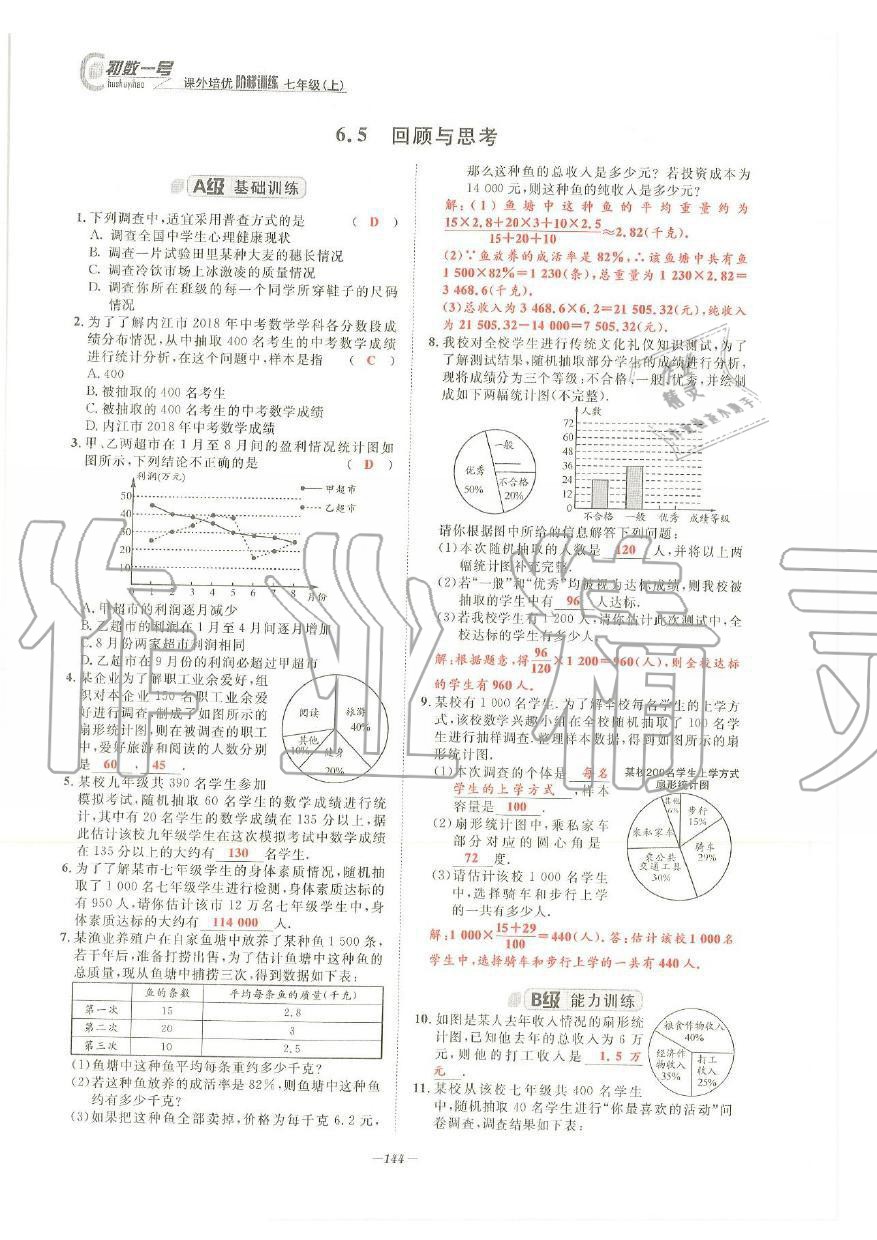 初数一号
chushuyihao
课外培优 阶梯训练 七年级(上)
6.5 回顾与思考
A级 基础训练
1.下列调查中,适宜采用普查方式的是 ( D )
A. 调查全国中学生心理健康现状
B. 调查一片试验田里某种大麦的穗长情况
C. 调查冷饮市场上冰激凌的质量情况
D. 调查你所在班级的每一个同学所穿鞋子的尺码
情况
2.为了了解内江市 2018 年中考数学学科各分数段成
绩分布情况,从中抽取 400 名考生的中考数学成绩
进行统计分析,在这个问题中,样本是指 ( C )
A.400
B.被抽取的 400 名考生
C.被抽取的 400 名考生的中考数学成绩
D.内江市 2018 年中考数学成绩
3.甲、乙两超市在 1 月至 8 月间的盈利情况统计图如
图所示,下列结论不正确的是 ( D )
利润(万元)
50
40
30
20
10
0 1 2 3 4 5 6 7 8 月份
甲超市
乙超市
A.甲超市的利润逐月减少
B.乙超市的利润在 1 月至 4 月间逐月增加
C.8 月份两家超市利润相同
D.乙超市在 9 月份的利润必超过甲超市
4.某企业为了解职工业余爱好,组
织对本企业 150 名职工业余爱
好进行调查,制成了如图所示的
扇形统计图,则在被调查的职工
中,爱好旅游和阅读的人数分别
是 60 、 45 .
阅读
旅游
40%
其他
10%
健身
20%
5.某校九年级共 390 名学生参加
模拟考试,随机抽取 60 名学生的数学成绩进行统
计,其中有 20 名学生的数学成绩在 135 分以上,据
此估计该校九年级学生在这次模拟考试中数学成绩
在 135 分以上的大约有 130 名学生.
6.为了了解某市七年级学生的身体素质情况,随机抽
取了 1 000 名七年级学生进行检测,身体素质达标的
有 950 人,请你估计该市 12 万名七年级学生中,身
体素质达标的大约有 114 000 人.
7.某渔业养殖户在自家鱼塘中放养了某种鱼 1 500 条,
若干年后,准备打捞出售,为了估计鱼塘中这种鱼的
总质量,现从鱼塘中捕捞三次,得到数据如下表:
鱼的条数 平均每条鱼的质量(千克)
第一次 15 2.8
第二次 20 3
第三次 10 2.5
(1)鱼塘中这种鱼平均每条重约多少千克?
(2)若这种鱼放养的成活率是 82%,则鱼塘中这种鱼
约有多少千克?
(3)如果把这种鱼全部卖掉,价格为每千克 6.2 元,
那么这种鱼的总收入是多少元? 若投资成本为
14 000 元,则这种鱼的纯收入是多少元?
解:(1)鱼塘中这种鱼的平均重量约为
15×2.8+20×3+10×2.5
15+20+10
≈2.82(千克).
(2)∵鱼放养的成活率是 82%,∴该鱼塘中共有鱼
1 500×82%=1 230(条),总重量为 1 230×2.82=
3 468.6(千克).
(3)总收入为 3 468.6×6.2=21 505.32(元),纯收入
为 21 505.32-14 000=7 505.32(元).
8.我校对全校学生进行传统文化礼仪知识测试,为了
了解测试结果,随机抽取部分学生的成绩进行分析,
现将成绩分为三个等级:不合格、一般、优秀,并绘制
成如下两幅统计图(不完整).
一般
优秀
50%
不合格
20%
人数
72
60
48
36
24
12
0
不合格 一般 优秀 成绩等级
请你根据图中所给的信息解答下列问题:
(1)本次随机抽取的人数是 120 人,并将以上两
幅统计图补充完整.
(2)若“一般”和“优秀”均被视为达标成绩,则我校被
抽取的学生中有 96 人达标.
(3)若我校学生有 1 200 人,请你估计此次测试中,全
校达标的学生有多少人.
解:根据题意,得 96/120 ×1 200=960(人),则全校达标
的学生有 960 人.
9.某校有 1 000 名学生.为了解全校每名学生的上学方
式,该校数学兴趣小组在全校随机抽取了 100 名学
生进行抽样调查.整理样本数据,得到如图所示的扇
形统计图.
(1)本次调查的个体是 每名
学生的上学方式 ,样本
容量是 100 .
(2)扇形统计图中,乘私家车
部分对应的圆心角是
72 度.
(3)请估计该校 1 000 名学生
中,选择骑车和步行上学
的一共有多少人.
某校200名学生上学方式
扇形统计图
其他
6%
步行
15%
乘私家车
骑车
29%
乘公共
交通工具
30%
解:1 000× 15+29/100 =440(人).答:估计该校 1 000 名
学生中,选择骑车和步行上学的一共有 440 人.
B级 能力训练
10.如图是某人去年收入情况的扇形统
计图,已知他去年的总收入为 6 万
元,则他的打工收入是 1.5 万
元 .
粮食作物收入
40%
经济作
物收入
35%
打工
收入
25%
11.某校从该校七年级共 400 名学生
中,随机抽取 40 名学生进行“你最喜欢的活动”问
卷调查,调查结果如下表:
—144—
作业精灵